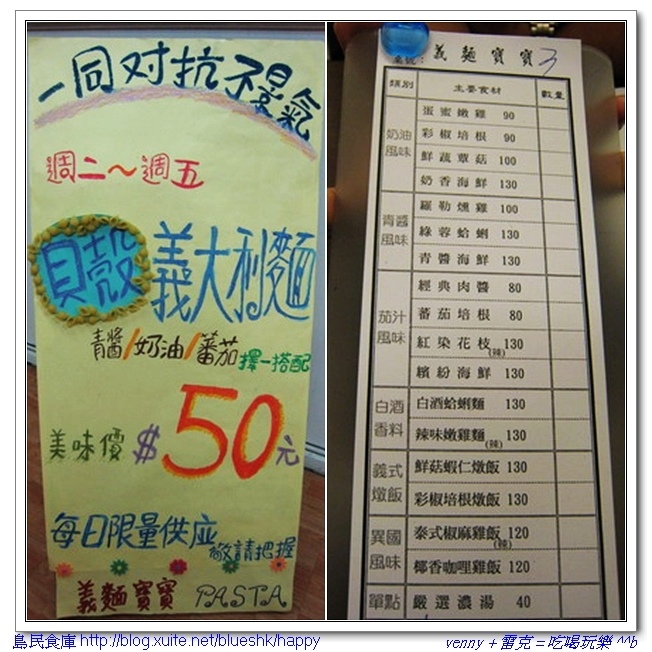 一同对抗不景氣
週二~週五
貝殼義大利麵
青醬/奶油/蕃茄擇一搭配
美味價$50元
每日限量供应
敬請把握
義麵寶寶 PASTA
義麵寶寶 3
類別 主要食材 數量
奶油風味
蛋蜜嫩雞 90
彩椒培根 90
鮮蔬蕈菇 100
奶香海鮮 130
青醬風味
羅勒燻雞 100
綠蓉蛤蜊 130
青醬海鮮 130
茄汁風味
經典肉醬 80
蕃茄培根 80
紅染花枝(辣) 130
繽紛海鮮 130
白酒香料
白酒蛤蜊麵 130
辣味嫩雞麵(辣) 130
義式燉飯
鮮菇蝦仁燉飯 130
彩椒培根燉飯 130
異國風味
泰式椒麻雞飯(辣) 120
椰香咖哩雞飯 120
單點
嚴選濃湯 40
島民食庫 http://blog.xuite.net/blueshk/happy
venny + 雷克 = 吃喝玩樂 ^^b